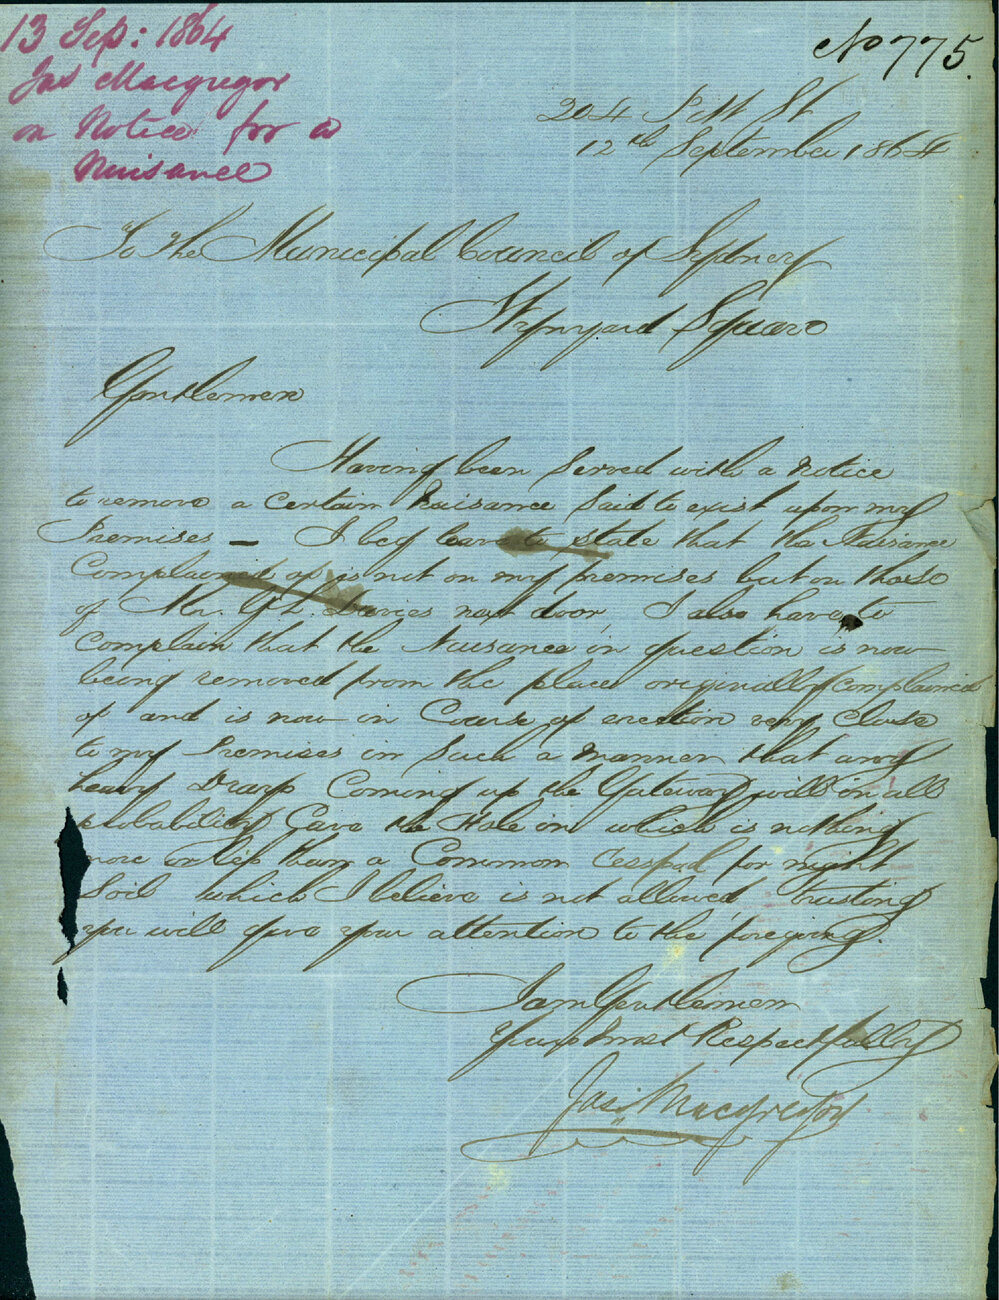 13 Sep: 1864
Jas Macgregor
on Notice for a
Nuisance
No 775.
204 Pitt St
12th September 1864
To The Municipal Council of Sydney
Wynyard Square
Gentlemen
Having been Served with a Notice
to remove a certain Nuisance Said to exist upon my
Premises – I beg leave to state that the Nuisance
Complained of is not on my premises but on those
of Mr. G. L. Davies next door, I also have to
Complain that the Nuisance in question is now
being removed from the place originally complained
of and is now in Course of erection very Close
to my Premises in Such a manner that any
heavy Drays Coming up the Gateway will in all
probability Cave the Hole in which is nothing
more or less than a Common Cesspool for night
Soil which I believe is not allowed trusting
you will give your attention to the foregoing.
I am Gentlemen
Yours most Respectfully
Jas. Macgregor